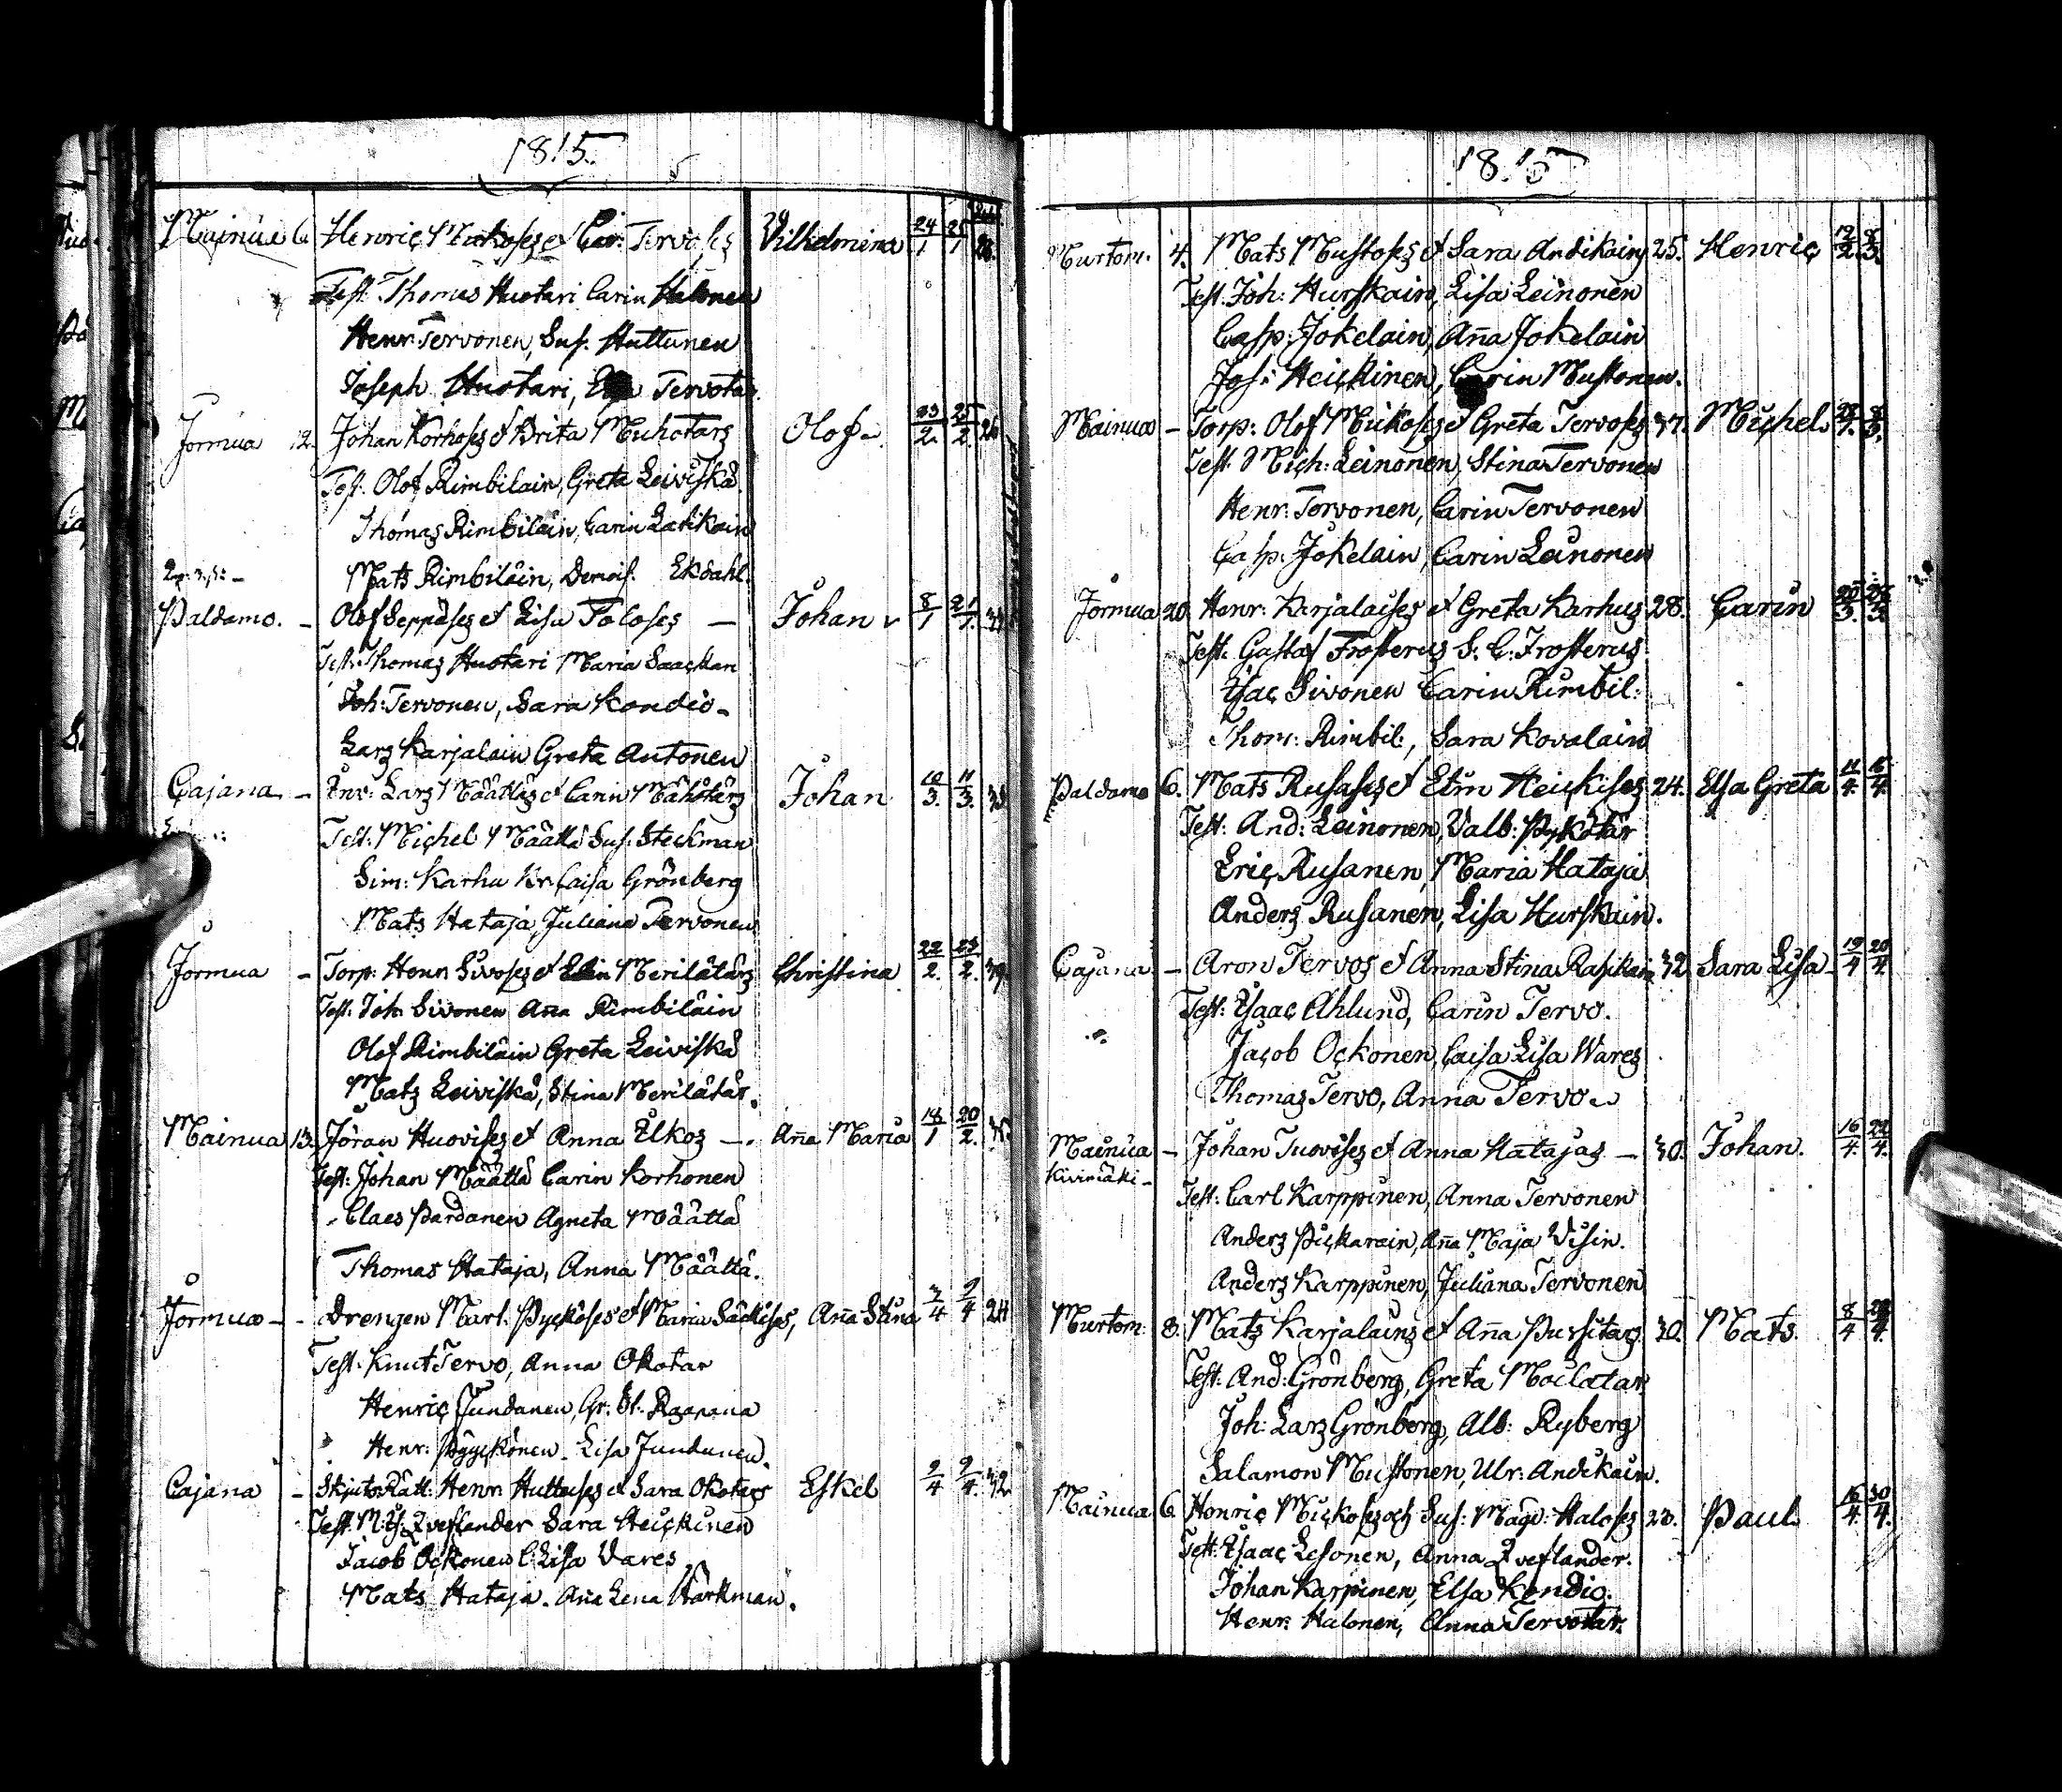 1815.
Mainua 6 Henric Mickoses et Car: Tervoses Vilhelmina 24/1 25/1 28.
Test: Thomas Huotari Carin Halonen
Henr: Tervonen, Sus. Huttunen
Joseph Huotari, Tervotar
Jormua 12. Johan Korhoses et Brita Michotars Olof 23/2. 25/2. 26
Test: Olof Rimbilain, Greta Leiviskä.
Thomas Rimbiläin, Carin Latikain
Mats Rimbiläin, Demois. Ekdahl.
Paldamo. – Olof Seppäses et Lisa Toloses – Johan 8/1 21/1.
Test: Thomas Huotari Maria Saackan
Joh: Tervonen, Sara Kondio –
Lars Karjalain Greta Antonen
Cajana – Inv: Lars Määttäs et Carin Mähötärs Johan 10/3. 11/3.
Test: Michel Määttä Sus. Steckman
Sim: Karhu Caisa Grönberg
Mats Hataja, Juliana Tervonen
Jormua – Torp: Henr: Sivoses et Elin Merilätärs Christina 22/2. 23/2.
Test: Joh: Sivonen Aña Rimbiläin
Olof Rimbiläin Greta Leiviskä
Mats Leiviskä, Stina Merilätär.
Mainua 13. Jöran Huovises et Anna Elkos –. Aña Maria 18/1 20/2.
Test: Johan Määttä Carin Korhonen
Claes Pardanen Agneta Määttä
Thomas Hataja, Anna Määttä.
Jormua – – Drengen Mart. Pycköses et Maria Säckises, Aña Stina 2/4 9/4 24
Test: Knut Tervo, Anna Okotar
Henric Jundanen, Gr: El: Raapana
Henr: Pyyckönen – Lisa Jundunen.
Cajana – Henr: Huttuses et Sara Okotars Eskel 9/4 9/4. 32
Test: Qveflander Sara Heickinen
Jacob Ockonen C: Lisa Vares
Mats Hataja. Aña Lena Harkman.
1815
Murtom. 4. Mats Mustoses et Sara Andikains 25. Henric 12/2. 8/3.
Test: Joh: Hurskain, Lisa Leinonen
Casp: Jokelain, Aña Jokelain
Jos: Heickinen, Carin Mustonen.
Mainua – Torp: Olof Mickoses et Greta Tervoses 37. Michel. 8/3.
Test: Mich: Leinonen, Stina Tervonen
Henr: Tervonen, Carin Tervonen
Casp: Jokelain, Carin Leinonen
Jormua 20. Henr: Karjalaises et Greta Karhus 28. Carin 25/3.
Test: Gustaf Frosterus S. C: Frosterus.
Esac Sivonen Carin Rimbil:
Thom: Rimbil:, Sara Kovalain
Paldamo 6. Mats Rusases et Elin Heickises 24. Elsa Greta 11/4. 16/4.
Test: And: Leinonen, Valb: Pykötär
Eric Rusanen, Maria Hataja
Anders Rusanen, Lisa Hurskain.
Cajana – Aron Tervos et Anna Stina Rasikain 32 Sara Lisa – 19/4 20/4.
Test: Esaac Ahlund, Carin Tervo.
Jacob Ockonen, Caisa Lisa Wares
Thomas Tervo, Anna Tervo
Mainua – Johan Tuovises et Anna Hatajas – 30. Johan. 16/4. 22/4.
Kivimäki –
Test: Carl Karppinen, Anna Tervonen
Anders Pickarain, Aña Maja Visin.
Anders Karppinen, Juliana Tervonen
Murtom. 8. Mats Karjalains et Aña Pursitars 30. Mats. 8/4 22/4.
Test: And: Grönberg, Greta Moilatar,
Joh: Lars Grönberg, Alb: Ryberg
Salamon Mustonen, Ulr: Andikain.
Mainua 6. Henric Mickoses och Sus: Magd: Haloses 23. Paul. 16/4. 30/4.
Test: Esaac Lesonen, Anna Qveflander.
Johan Karpinen, Elsa Kondio.
Henr: Halonen, Anna Tervotar.